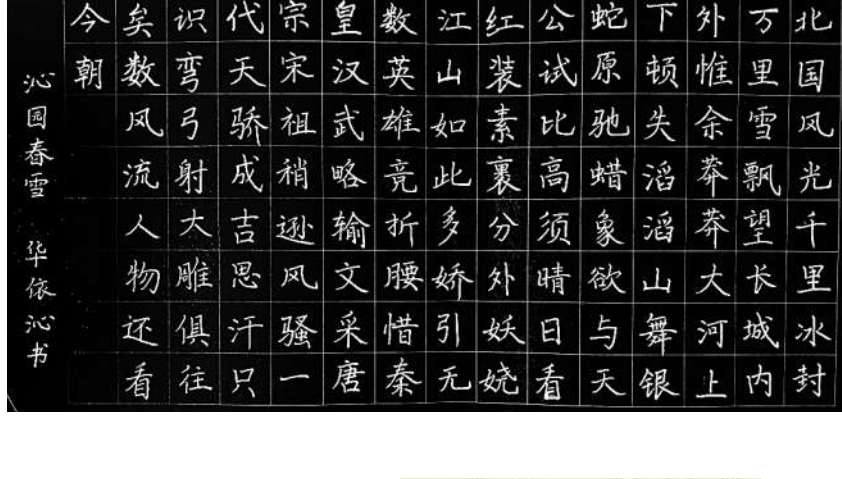 北国风光千里冰封
万里雪飘望长城内
外惟余莽莽大河上
下顿失滔滔山舞银
蛇原驰蜡象欲与天
公试比高须晴日看
红装素裹分外妖娆
江山如此多娇引无
数英雄竞折腰惜秦
皇汉武略输文采唐
宗宋祖稍逊风骚一
代天骄成吉思汗只
识弯弓射大雕俱往
矣数风流人物还看
今朝
沁园春雪 华依沁书